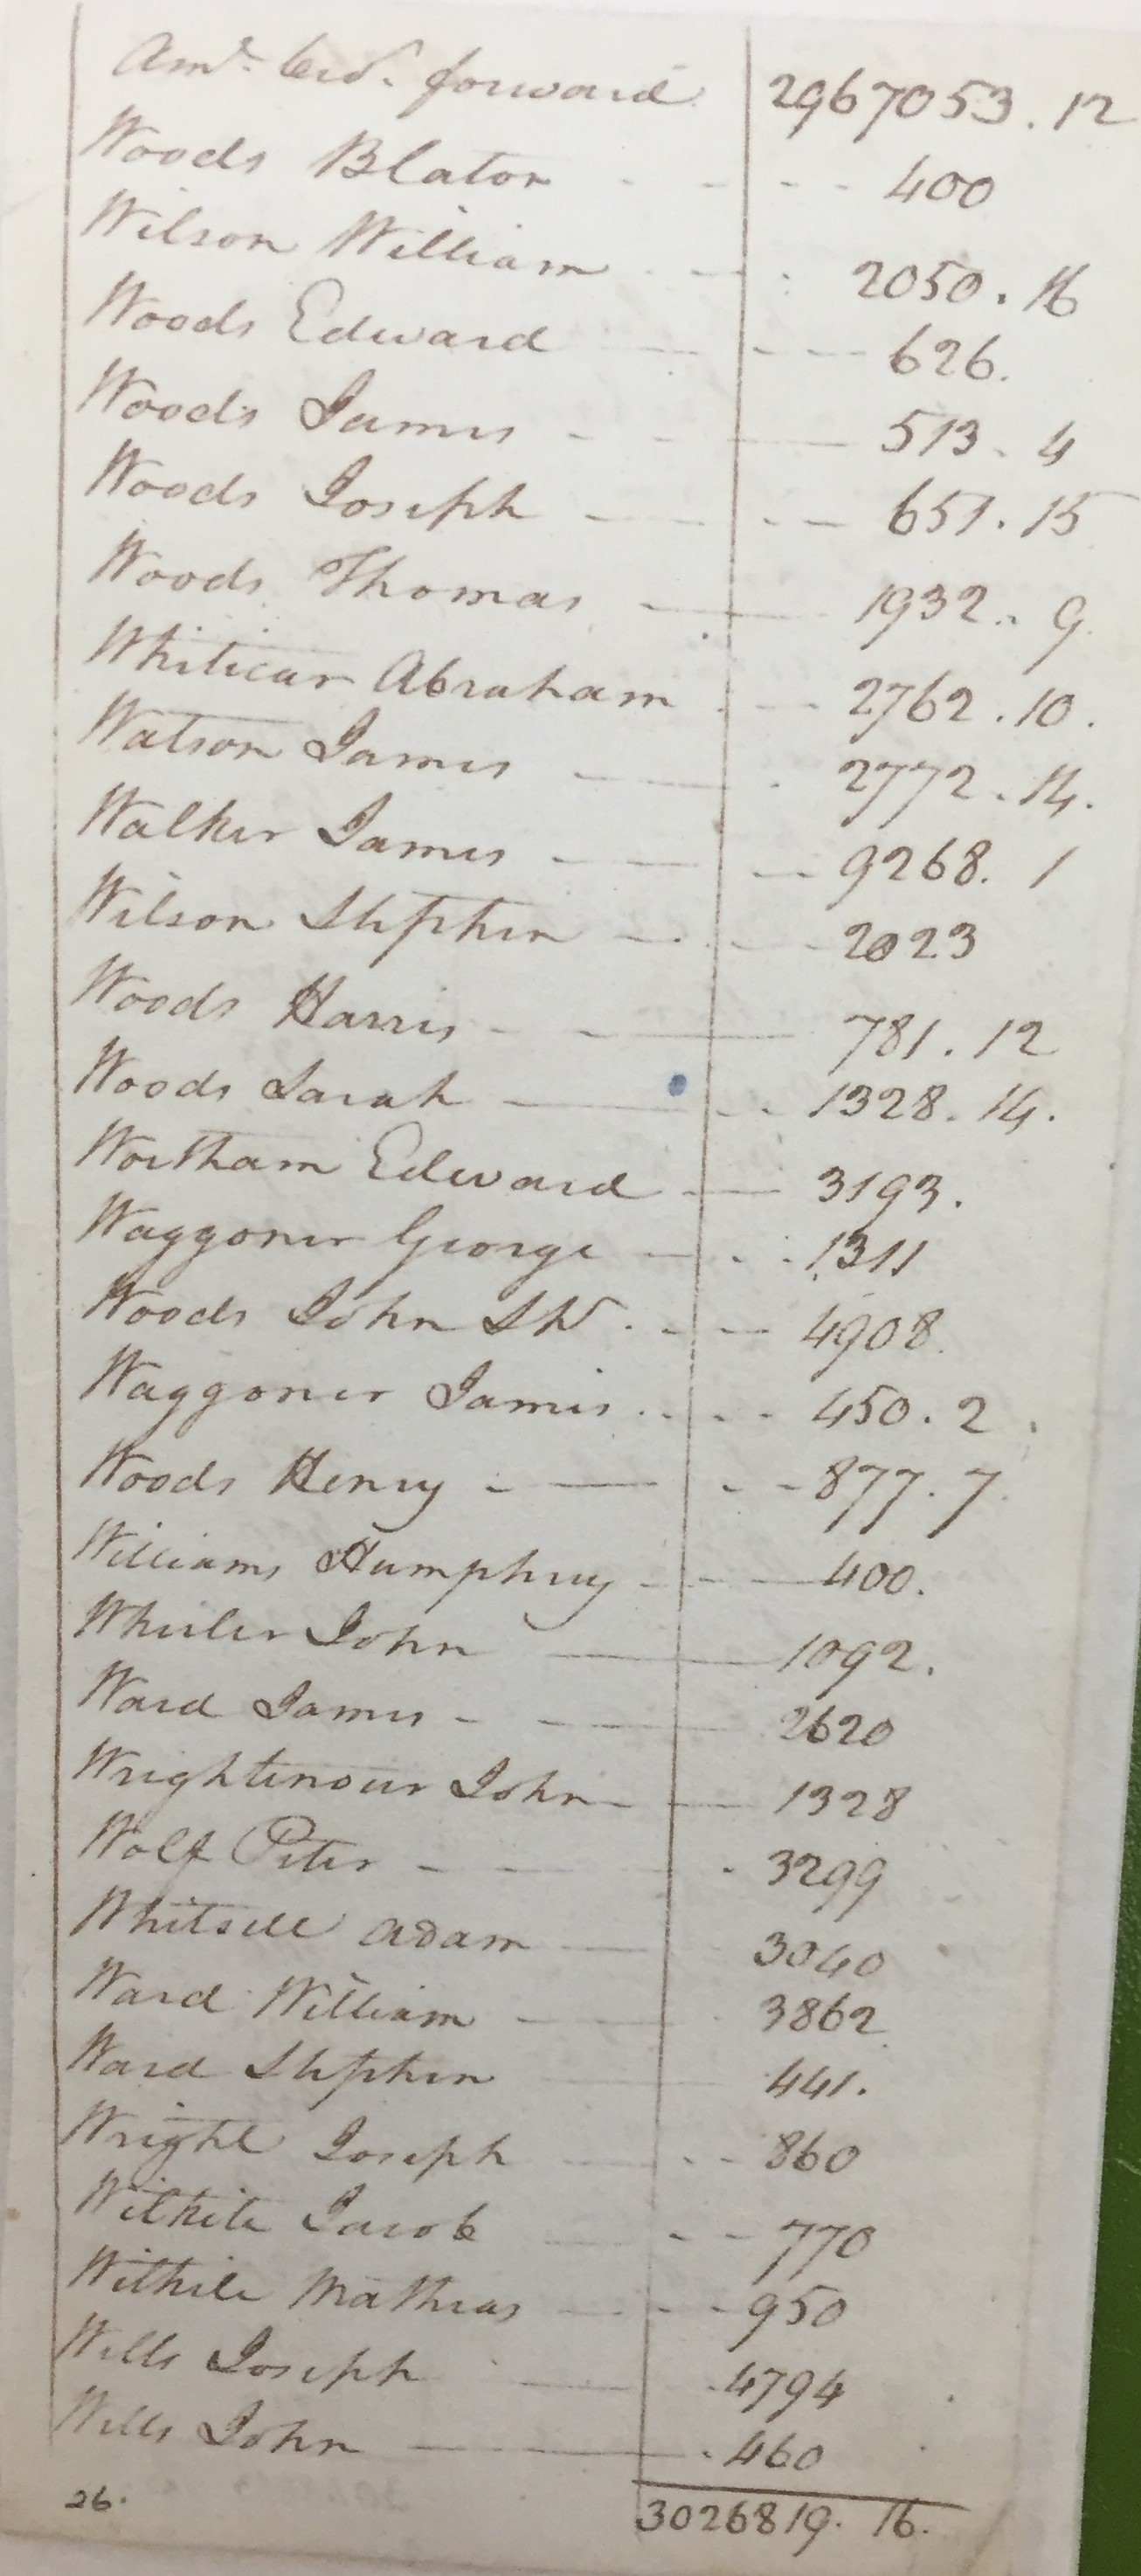 Amt. brot. forward 2967053.12
Woods Blaton 400
Wilson William 2050.16
Woods Edward 626.
Woods James 513.4
Woods Joseph 651.15
Woods Thomas 1932.9
Whiticar Abraham 2762.10.
Watson James 2772.14.
Walker James 9268.1
Wilson Stephen 2023
Woods Harris 781.12
Woods Sarah 1328.14.
Wortham Edward 3193.
Waggoner George 1311
Woods John SW. 4908.
Waggoner James 450.2
Woods Henry 877.7
Williams Humphrey 400.
Wheeler John 1092.
Ward James 2620
Wrightenour John 1328
Wolf Peter 3299
Whitsell Adam 3040
Ward William 3862
Ward Stephen 441.
Wright Joseph 860
Wilhite Jacob 770
Wilhite Mathias 950
Wills Joseph 4794
Wills John 460
26. 3026819.16.